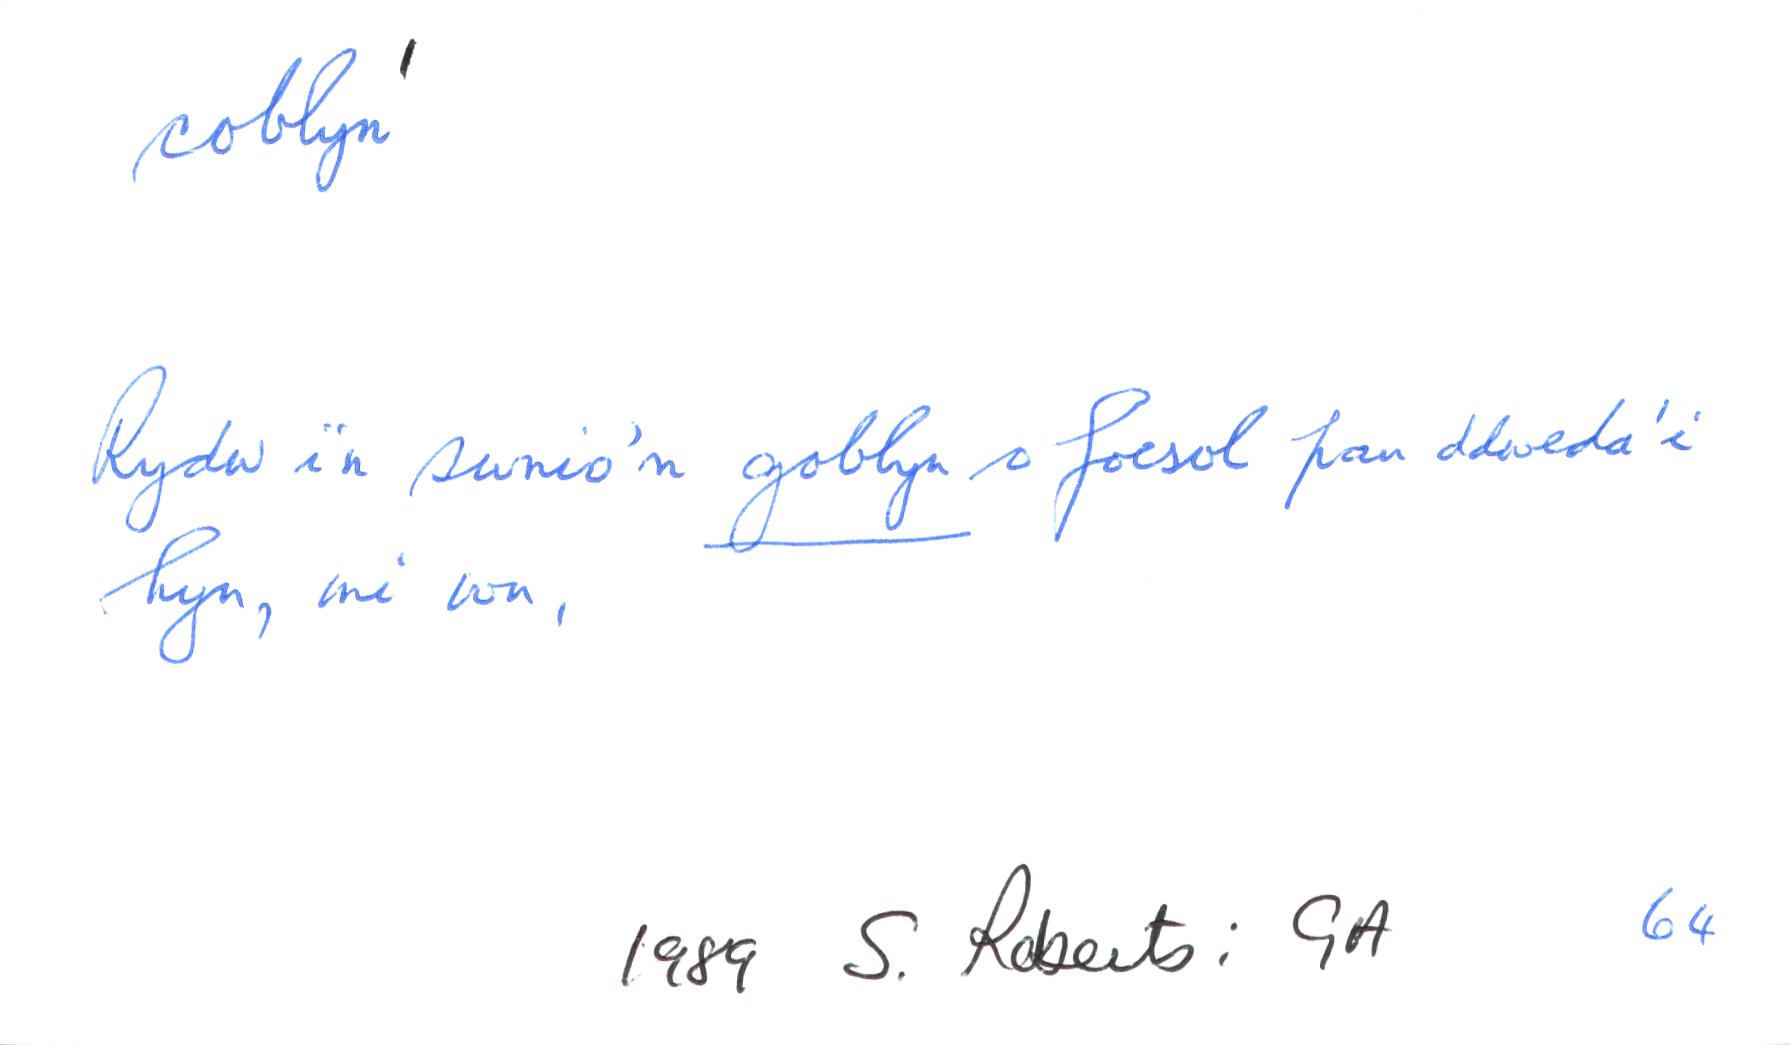 coblyn'
Rydw i'n swnio'n goblyn o foesol pan ddweda' i
hyn, mi wn,
1989 S. Roberts: GA 64